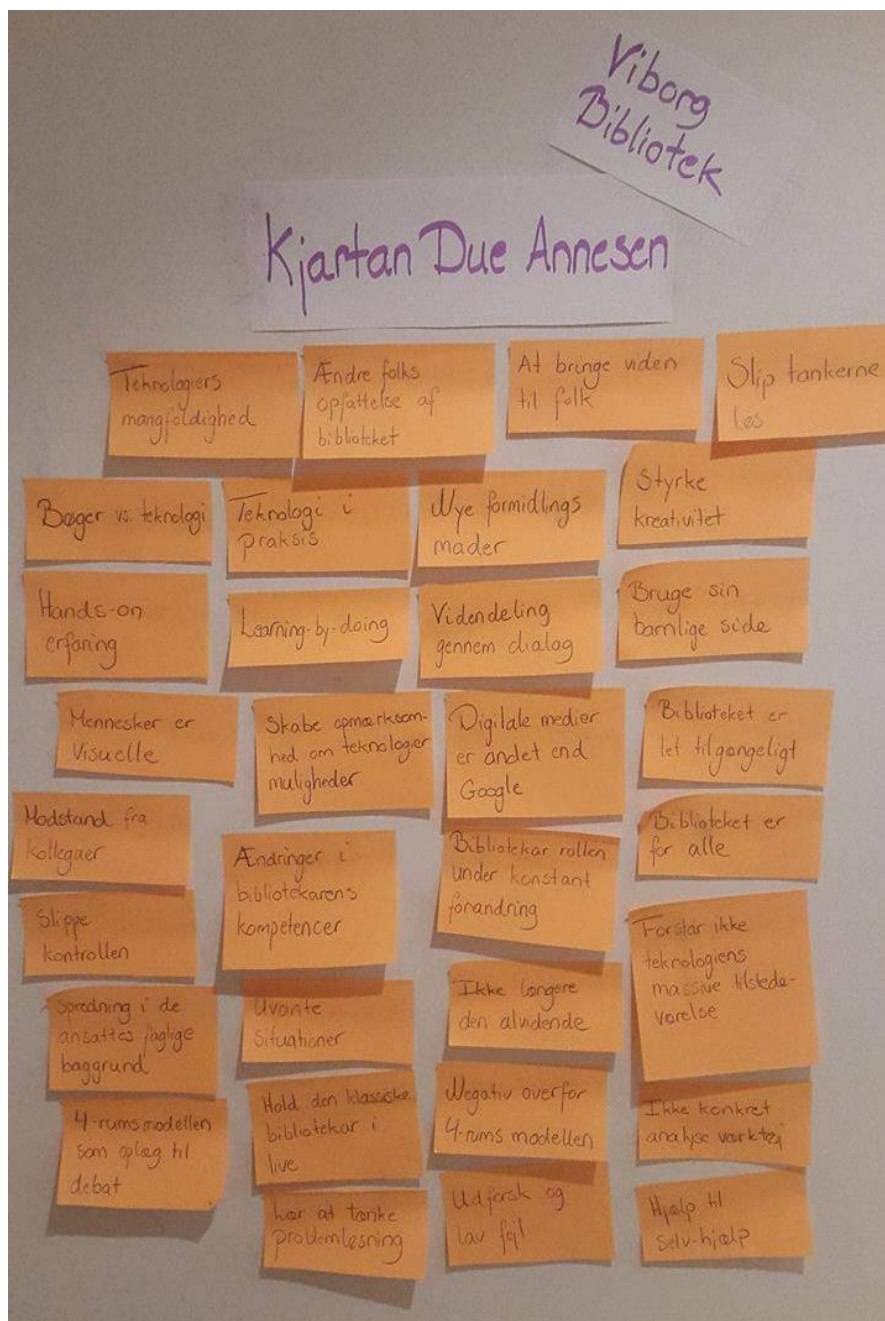 Viborg
Bibliotek
Kjartan Due Annesen
Teknologiers
mangfoldighed
Ændre folks
opfattelse af
biblioteket
At bringe viden
til folk
Slip tankerne
løs
Bøger vs. teknologi
Teknologi i
praksis
Nye formidlings
måder
Styrke
kreativitet
Hands-on
erfaring
Learning-by-doing
Videndeling
gennem dialog
Bruge sin
barnlige side
Mennesker er
Visuelle
Skabe opmærksom-
hed om teknologier
muligheder
Digitale medier
er andet end
Google
Biblioteket er
let tilgængeligt
Modstand fra
kollegaer
Ændringer i
bibliotekarens
kompetencer
Bibliotekar rollen
under konstant
forandring
Biblioteket er
for alle
Slippe
kontrollen
Forstår ikke
teknologiens
massive tilstede-
værelse
Spredning i de
ansattes faglige
baggrund
Uvante
situationer
Ikke længere
den alvidende
4-rumsmodellen
som oplæg til
debat
Hold den klassiske
bibliotekar i
live
Negativ overfor
4-rums modellen
Ikke konkret
analyse værktøj
Lær at tænke
problemløsning
Udforsk og
lav fejl
Hjælp til
selv-hjælp